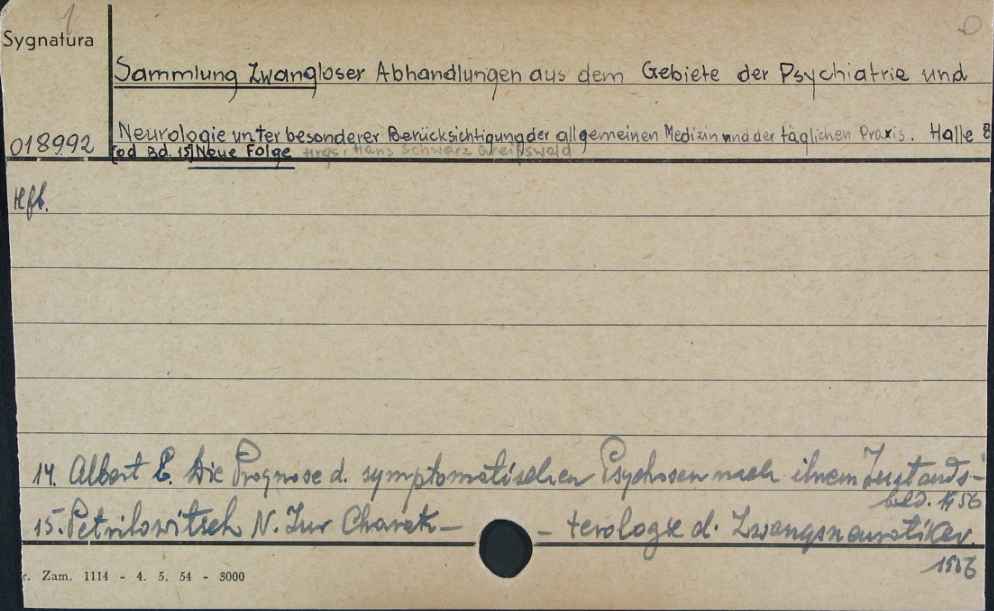 Sygnatura
Sammlung Zwangloser Abhandlungen aus dem Gebiete der Psychiatrie und
018992 Neurologie unter besonderer Berücksichtigung der allgemeinen Medizin und der täglichen Praxis. Halle
[od Bd. 15] Neue Folge Hrgs: Hans Schwarz Greifswald
Hft.
14. Albert E. Die Prognose d. symptomatischen Psychosen nach ihrem Zustands-
bild. 1956
15. Petrilowitsch N. Zur Charak- - terologie d. Zwangsneurotiker.
1956
r. Zam. 1114 - 4. 5. 54 - 3000